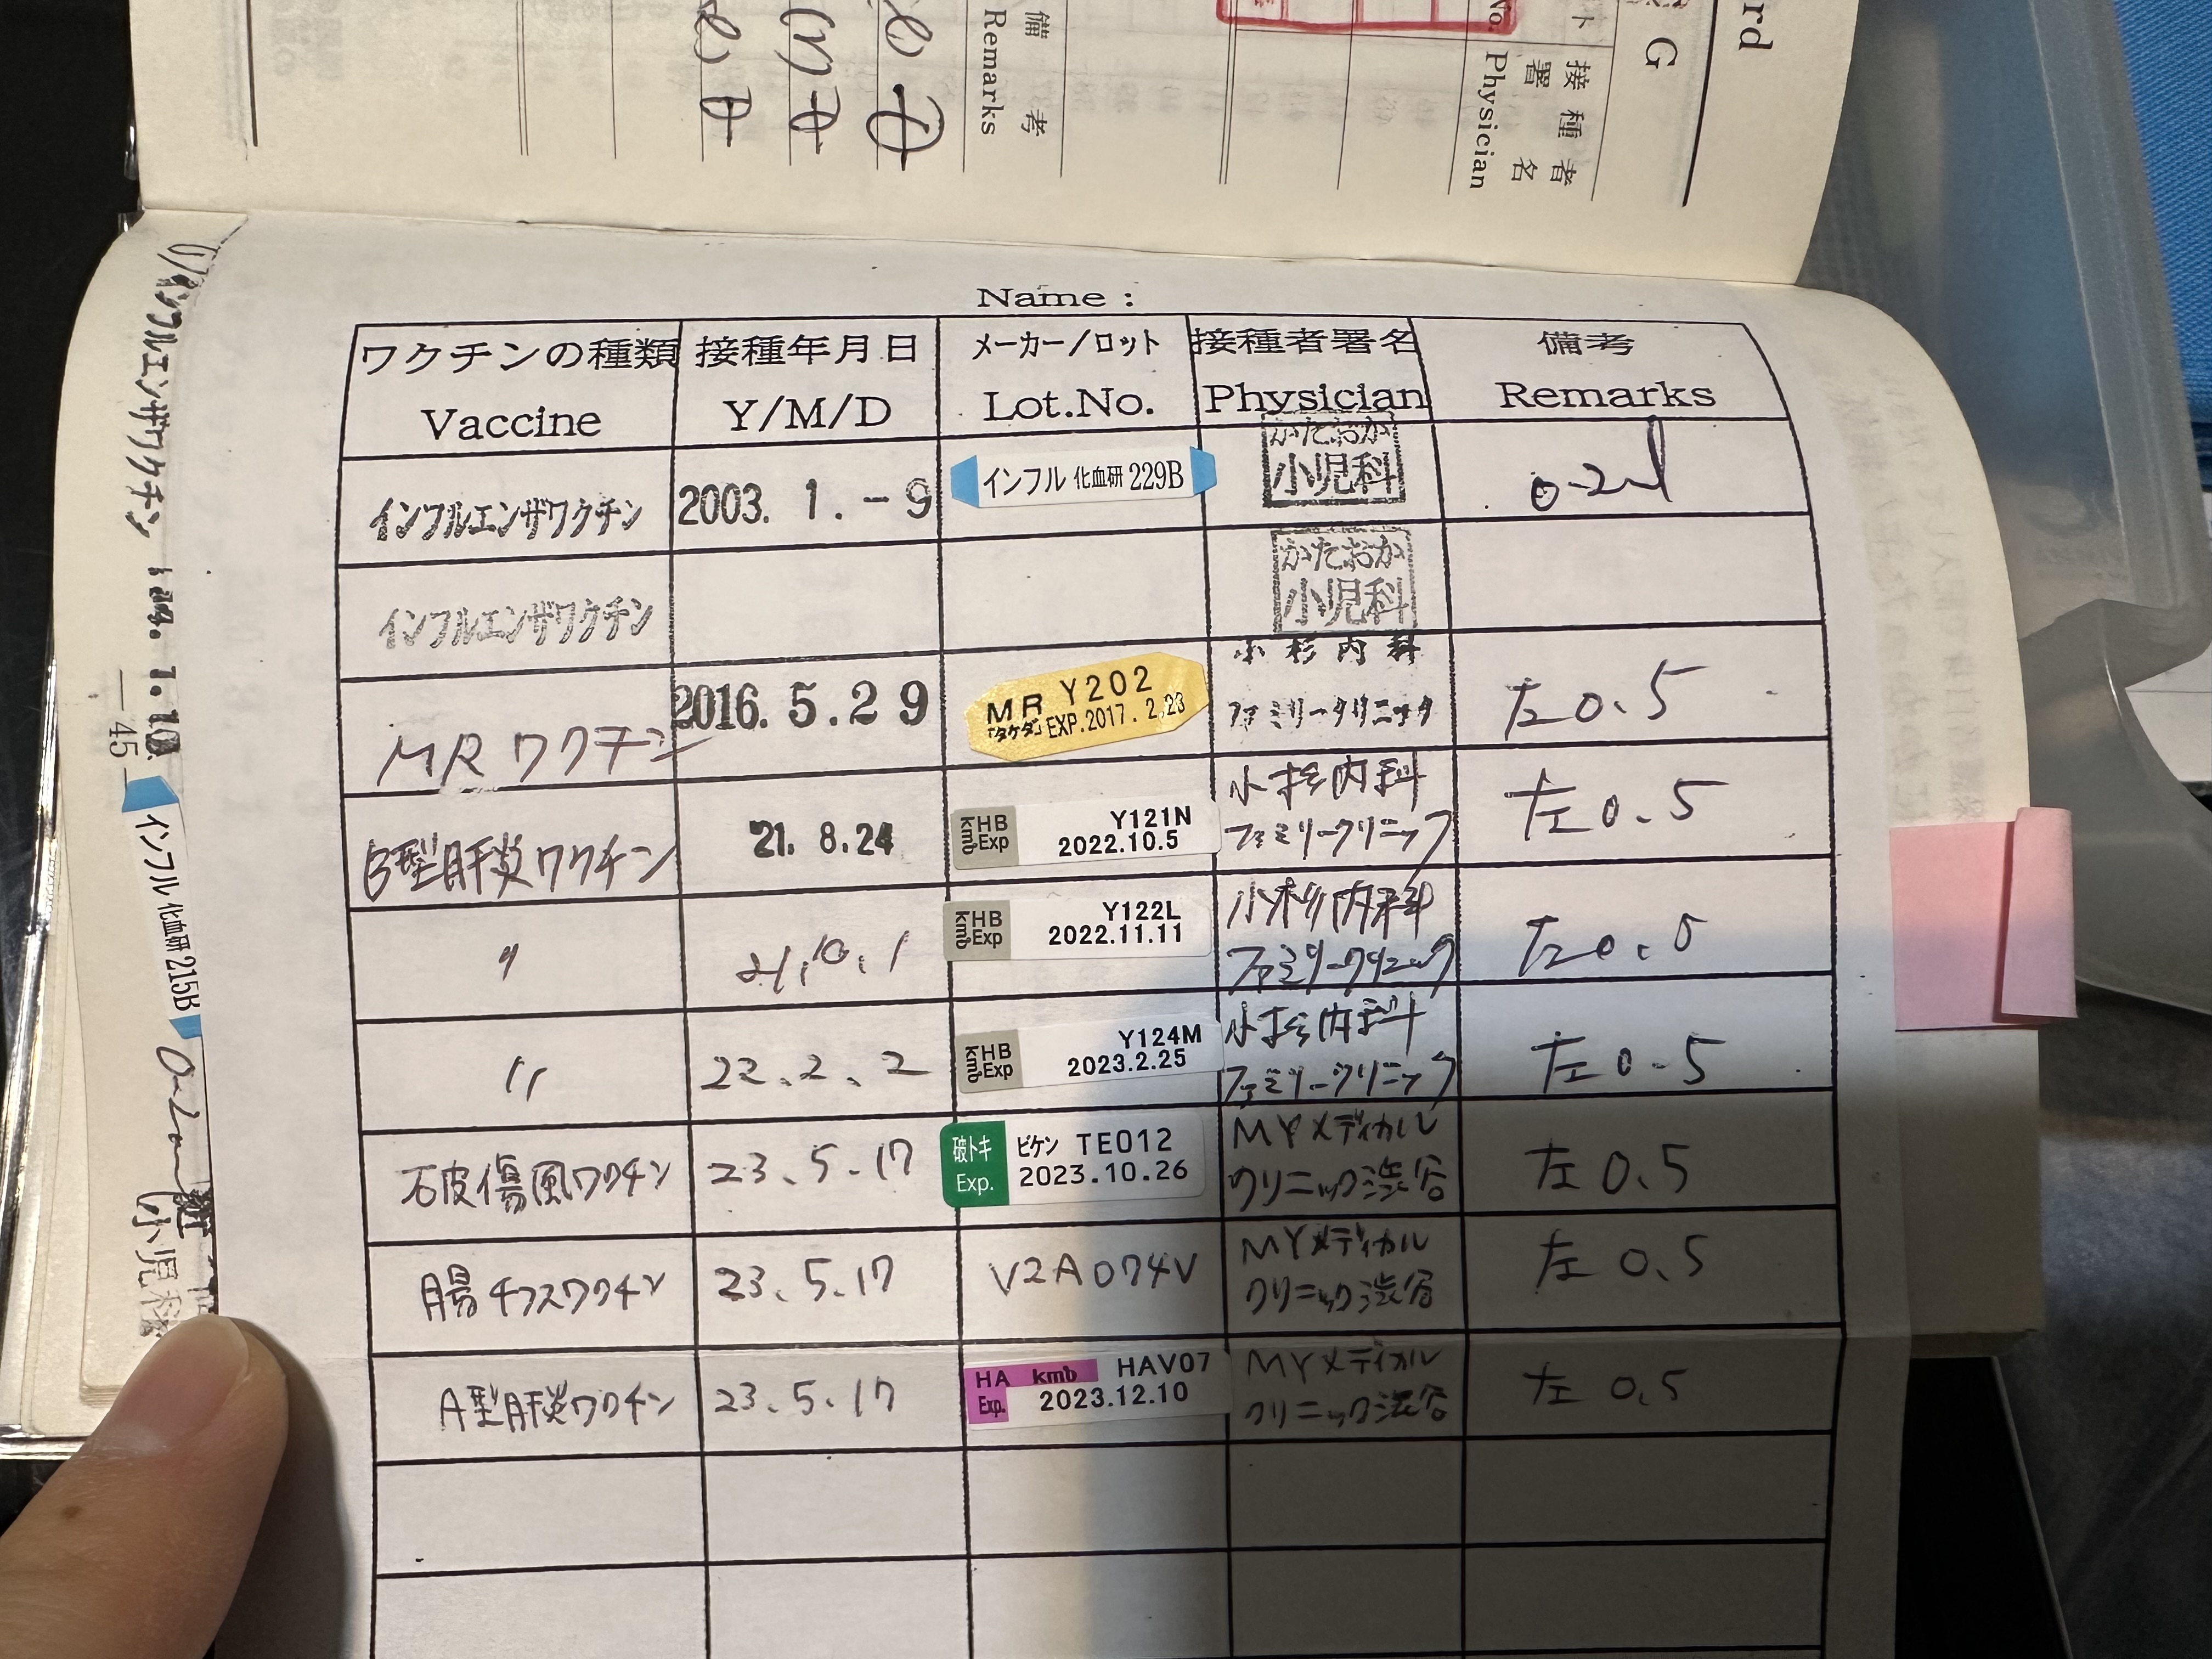 rd
G
接種者
署名
No. Physician
備考
Remarks
Name :
ワクチンの種類 接種年月日 メーカー/ロット 接種者署名 備考
Vaccine Y/M/D Lot.No. Physician Remarks
インフルエンザワクチン 2003. 1. -9 インフル 化血研 229B かたおか 小児科
インフルエンザワクチン かたおか 小児科
MRワクチン 2016. 5. 29 MR Y202 「タケダ」EXP.2017. 2.23 小杉内科 ファミリークリニック 左0.5
B型肝炎ワクチン 21. 8.24 HB kmb Exp Y121N 2022.10.5 小杉内科 ファミリークリニック 左0.5
〃 21.10.1 HB kmb Exp Y122L 2022.11.11 小杉内科 ファミリークリニック 左0.5
〃 22.2.2 HB kmb Exp Y124M 2023.2.25 小杉内科 ファミリークリニック 左0.5
破傷風ワクチン 23.5.17 破トキ Exp. ビケン TE012 2023.10.26 MYメディカル クリニック渋谷 左0.5
腸チフスワクチン 23.5.17 V2A074V MYメディカル クリニック渋谷 左0.5
A型肝炎ワクチン 23.5.17 HA kmb Exp. HAV07 2023.12.10 MYメディカル クリニック渋谷 左0.5
インフルエンザワクチン
インフル 化血研 215B
小児科
—45—